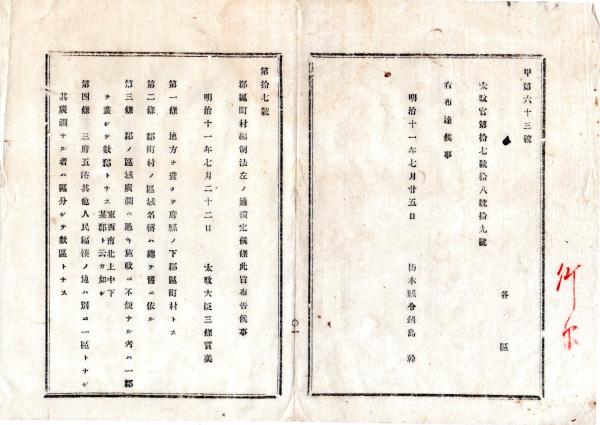 甲第六十三號
各區
太政官第拾七號拾八號拾九號
右布達候事
明治十一年七月廿五日 栃木縣令鍋島幹
第拾七號
郡區町村編制法左ノ通被定候條此旨布告候事
明治十一年七月二十二日 太政大臣三條實美
第一條 地方ヲ畫シテ府縣ノ下郡區町村トス
第二條 郡町村ノ區域名稱ハ總テ舊ニ依ル
第三條 郡ノ區域廣濶ニ過キ施政ニ不便ナル者ハ一郡
ヲ畫シテ數郡トナス東西南北上中下
某郡ト云カ如シ
第四條 三府五港其他人民輻湊ノ地ハ別ニ一區トナシ
其廣濶ナル者ハ區分シテ數區トナス
〇一